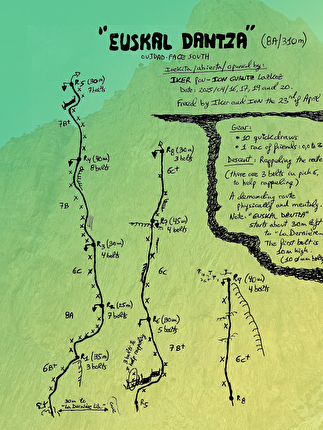 "EUSKAL DANTZA" (8A/310m)
OUIDAD. FACE SOUTH
Irekita/abierta/opened by:
IKER POU - ION
Date: 2025/04/16, 17, 19 and 20.
Freed by Iker and ION the 23rd of April
Gear:
* 10 quickdraws
* 1 rac of friends:
Descent: Rappeling the route
(there are 3 bolts in pich 6,
to help rappeling)
A demanding route
physically and mentaly.
Note: "EUSKAL DANTZA"
start about 30m left
to "La Dernière
The first bolt is
10m high
(10 ømm bolts
R5 (30m)
7 bolts
7B+
R4 (40m)
8 bolts
7B
R3 (30m)
4 bolts
6C
R2 (25m)
7 bolts
8A
R1 (35m)
3 bolts
6B+
30m to
"La Dernière Lib."
R8 (30m)
3 bolts
6c+
R7 (45m)
4 bolts
6c
R6 (30m)
5 bolts
3 bolts to
help rappeling
7B+
R5
R9 (40m)
4 bolts
6c+
R8